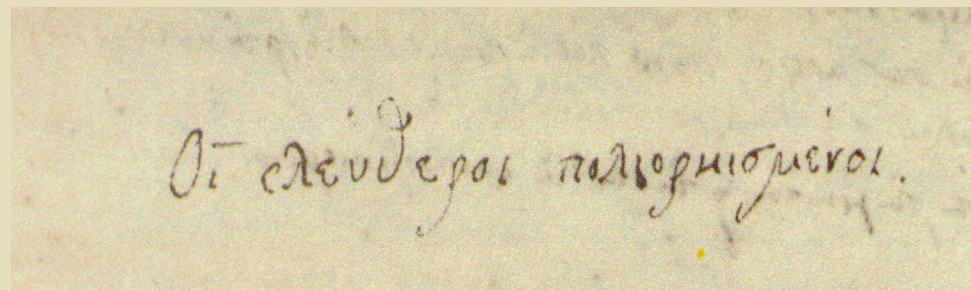 Οἱ ελεύθεροι πολιορκισμένοι.